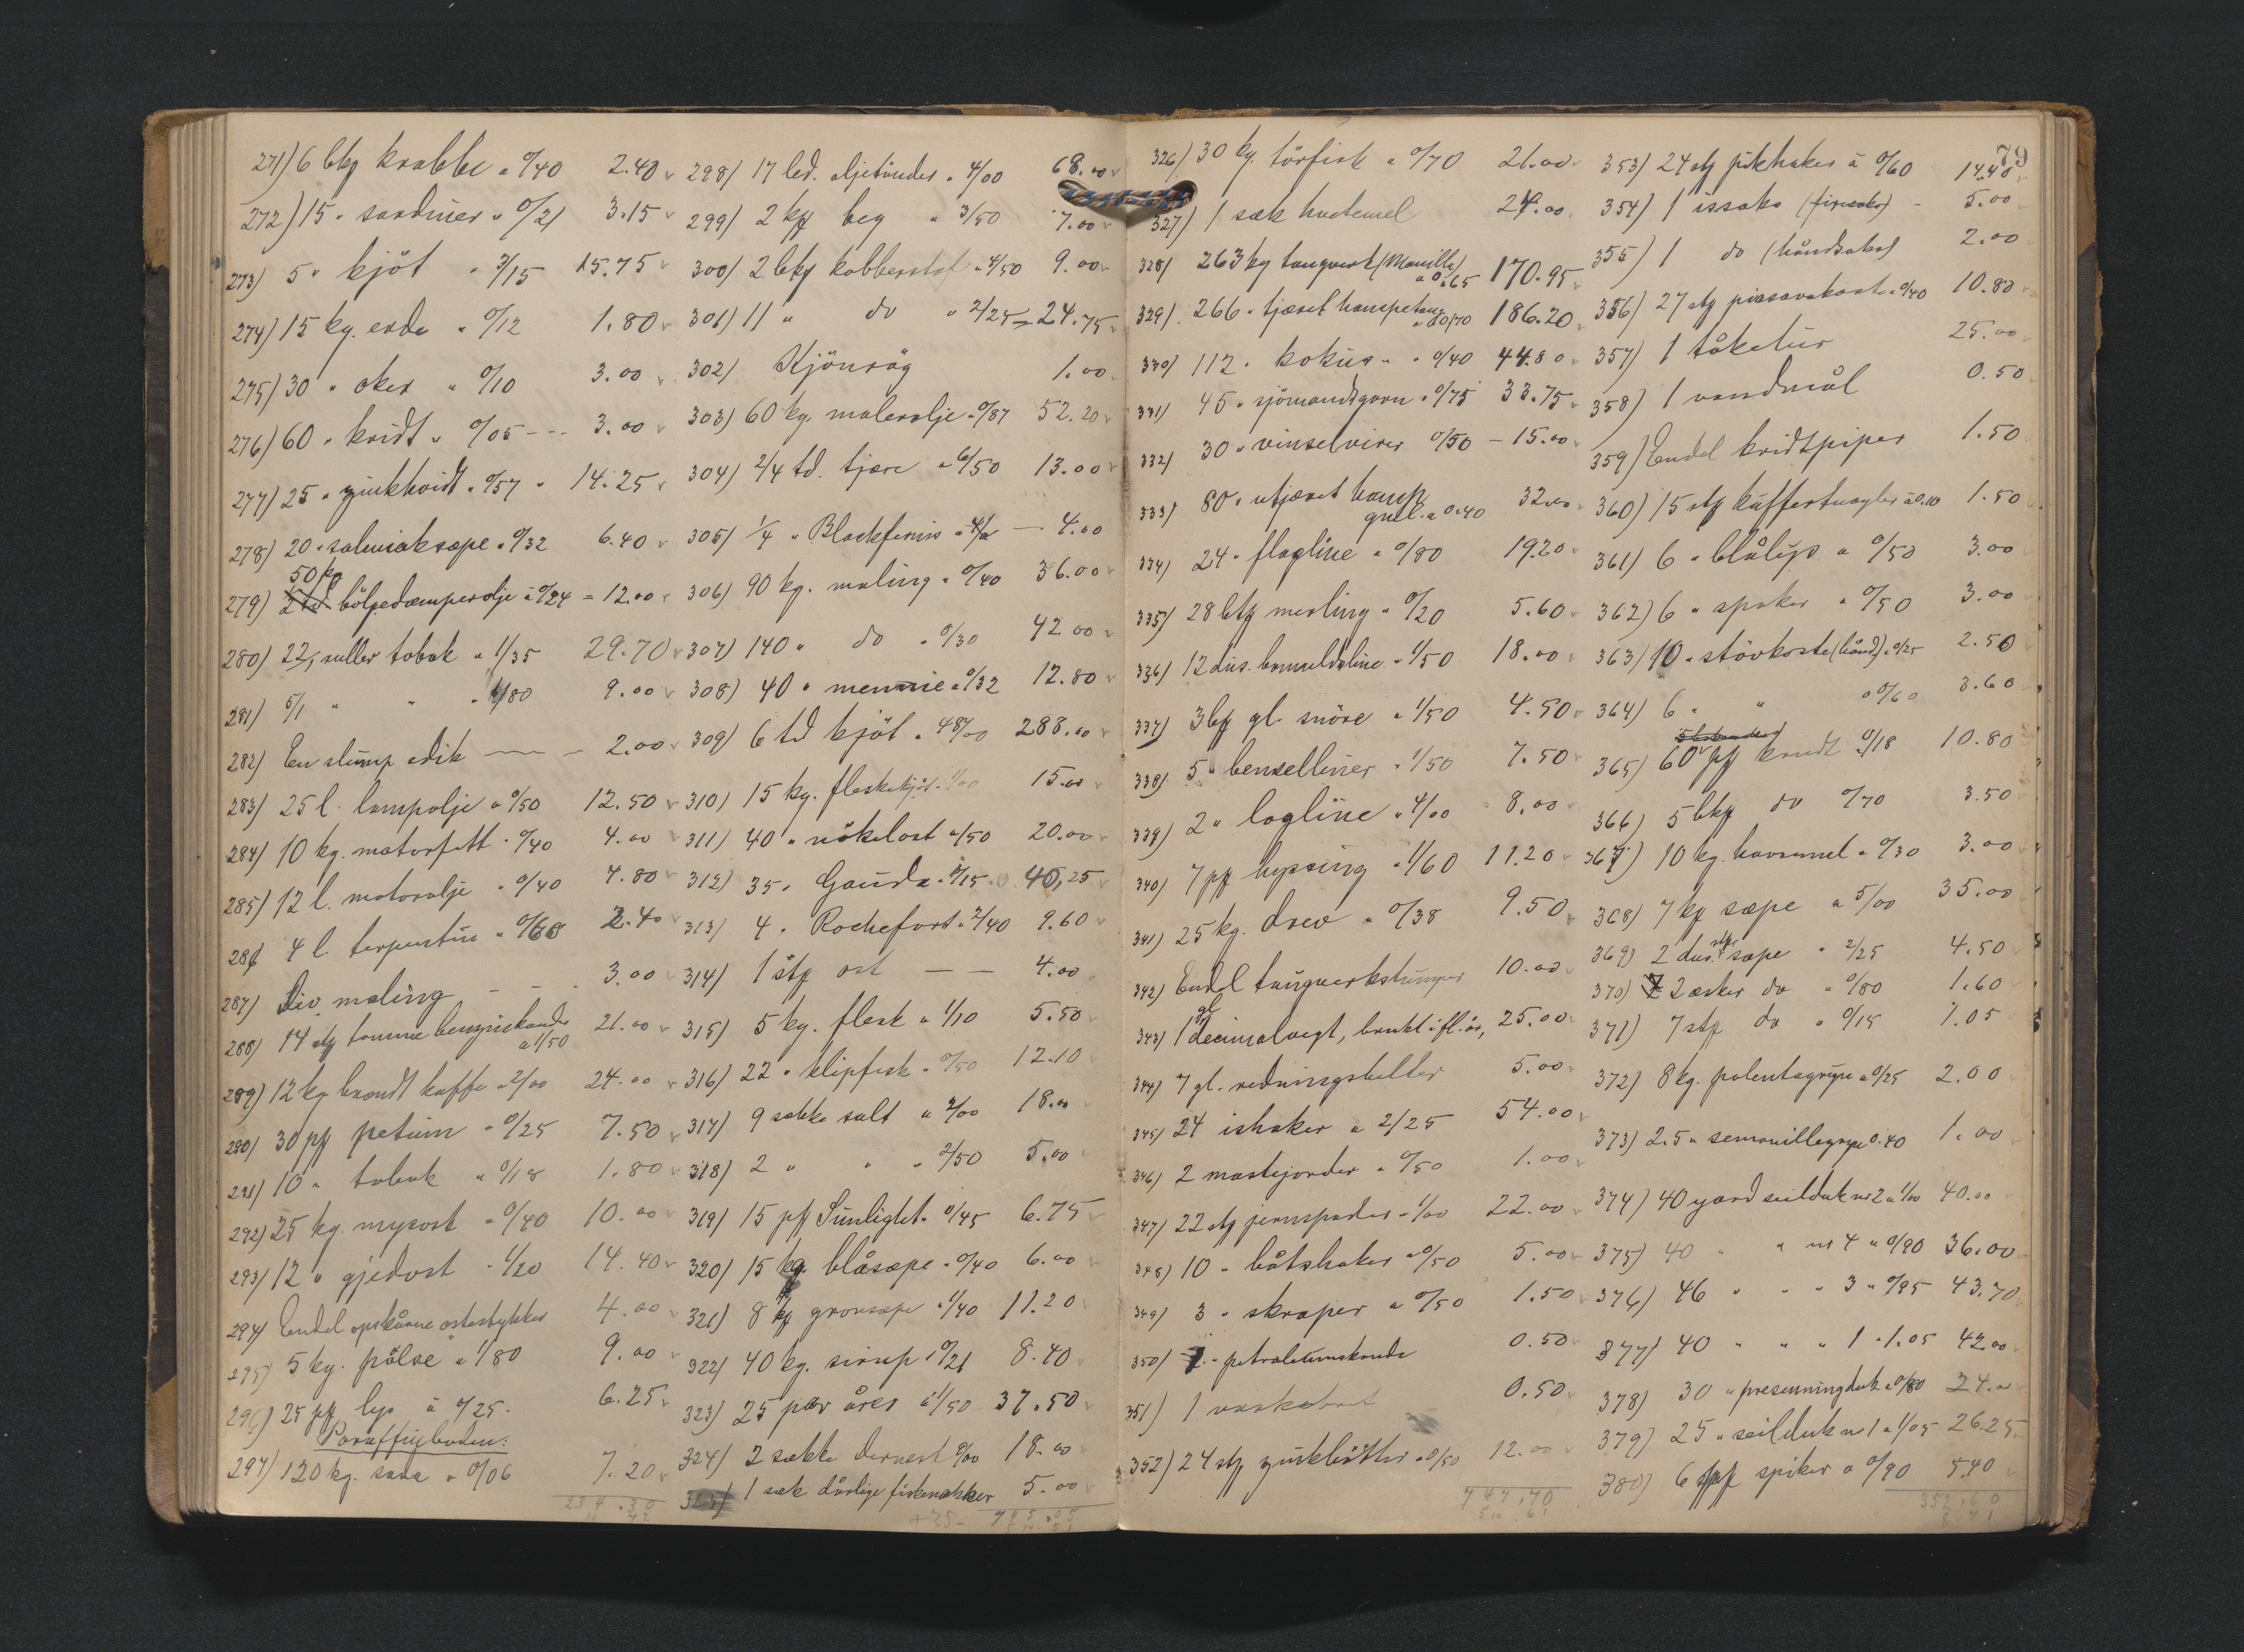 271) 6 bkf krabbe a 0/40 2.40
272) 15 " sardiner " 0/21 3.15
273) 5 " kjöt " 3/15 15.75
274) 15 kg. erda " 0/12 1.80
275) 30 " oker " 0/10 3.00
276) 60 " kridt " 0/05 -- 3.00
277) 25 " zinkhvidt " 0/57 " 14.25
278) 20 " salmiaksæpe " 0/32 6.40
50 kg
279) bölgedæmperolje à 0/24 = 12.00
280) 22/1 ruller tobak " 1/35 29.70
281) 5/1 " " " 1/80 9.00
282) En slump edik — 2.00
283) 25 l. lampolje a 0/50 12.50
284) 10 kg. motorfett " 0/40 4.00
285) 12 l. motorolje " 0/40 4.80
286) 4 l. terpentin " 0/60 2.40
287) Div. maling - - 3.00
288) 14 stf tomme benzinkander
a 1/50 21.00
289) 12 kg brændt kaffe a 2/00 24.00
290) 30 pf petum " 0/25 7.50
291) 10 " tobak " 0/18 1.80
292) 25 kg. mysost " 0/40 10.00
293) 12 " gjedost " 1/20 14.40
294) Endel opskårne ostestykker 4.00
295) 5 kg. pölse a 1/80 9.00
296) 25 pf lys à 0/25. 6.25
Paraffinboden:
297) 120 kg. soda a 0/06 7.20
234.30
298) 17 led. oljetönder " 4/00 68.00
299) 2 kf beg " 3/50 7.00
300) 2 bkf kobberstof " 4/50 9.00
301) 11 " do " 2/25 = 24.75
302) Kjönrög 1.00
303) 60 kg. malerolje " 0/87 52.20
304) 2/4 td. tjære a 6/50 13.00
305) 1/4 " Blackfernis — 4.00
306) 90 kg. maling " 0/40 36.00
307) 140 " do " 0/30 42.00
308) 40 " mennie a 0/32 12.80
309) 6 td kjöt " 48/00 288.00
310) 15 kg. fleskekjöt " 1/00 15.00
311) 40 " nökelost a 0/50 20.00
312) 35 " Gauda " 1/15 40,25
313) 4 " Rochefort " 2/40 9.60
314) 1 stf ost — — 4.00
315) 5 kg. flesk a 1/10 5.50
316) 22 " klipfisk " 0/50 12.10
317) 9 sække salt a 2/00 18.00
318) 2 " " " 2/50 5.00
319) 15 pf Sunlight " 0/45 6.75
320) 15 kg. blåsæpe " 0/40 6.00
321) 8 kf grönsæpe " 1/40 11.20
322) 40 kg. sirup " 0/21 8.40
323) 25 par årer à 1/50 37.50
324) 2 sække 9/00 18.00
325) 1 sæk dårlige 5.00
+ 25 - 705.05
79
326) 30 kg. törfisk a 0/70 21.00
327) 1 sæk hvetemel 24.00
328) 263 kg taugverk (Manilla)
a 0.65 170.95
329) 266 " tjæret hampetaug
a 0/70 186.20
330) 112 " kokus " " 0/40 44.80
331) 45 " sjömandsgarn " 0/75 33.75
332) 30 " vinselvirer 0/50 - 15.00
333) 80 " utjæret hamp
a 0.40 32.00
334) 24 " flagline " 0/80 19.20
335) 28 btf merling " 0/20 5.60
336) 12 dus. bomuldsline " 1/50 18.00
337) 3 bf gl. snöre " 1/50 4.50
338) 5 " benselliner " 1/50 7.50
339) 2 " logline " 4/00 8.00
340) 7 pf hyssing " 1/60 11.20
341) 25 kg. drev " 0/38 9.50
342) Endel taugverkstumper 10.00
gl
343) 1 decimalvegt, brukt i fl. år, 25.00
344) 7 gl. redningsbelter 5.00
345) 24 ishaker a 2/25 54.00
346) 2 mastejorder " 0/50 1.00
347) 22 stf jernspader " 1/00 22.00
348) 10 " båtshaker " 0/50 5.00
349) 3 " skraper a 0/50 1.50
350) 1 " petroleumskande 0.50
351) 1 vaskebret 0.50
352) 24 stf zinkbötter " 0/50 12.00
747.70
353) 24 stf pikhaker à 0/60 14.40
354) 1 issaks - 5.00
355) 1 do (håndsaks) 2.00
356) 27 stf piasavakoste " 0/40 10.80
357) 1 tåkelur 25.00
358) 1 vandmål 0.50
359) Endel kridtpiper 1.50
360) 15 stf kuffertnagler à 0.10 1.50
361) 6 " blålys a 0/50 3.00
362) 6 " spaker " 0/50 3.00
363) 10 " stövkoste (hånd) " 0/25 2.50
364) 6 " " a 0/60 3.60
365) 60 pf krudt 0/18 10.80
366) 5 bkf do 0/70 3.50
367) 10 kg. havremel " 0/30 3.00
368) 7 kf sæpe a 5/00 35.00
369) 2 dus. stfr sæpe " 2/25 4.50
370) 2 æsker do " 0/80 1.60
371) 7 stf do " 0/15 1.05
372) 8 kg. polentagryn a 0/25 2.00
373) 2.5 " semouillegryn 0.40 1.00
374) 40 yard seilduk nr 2 a 1/00 40.00
375) 40 " " nr 4 " 0/90 36.00
376) 46 " " " 3 " 0/95 43.70
377) 40 " " " 1 " 1.05 42.00
378) 30 " presenningduk a 0/80 24.00
379) 25 " seilduk nr 1 a 1/05 26.25
380) 6 pf spiker a 0/90 5.40
352.60